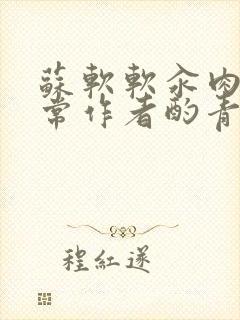 蘇軟軟汆肉
常作者酌青
程紅遂